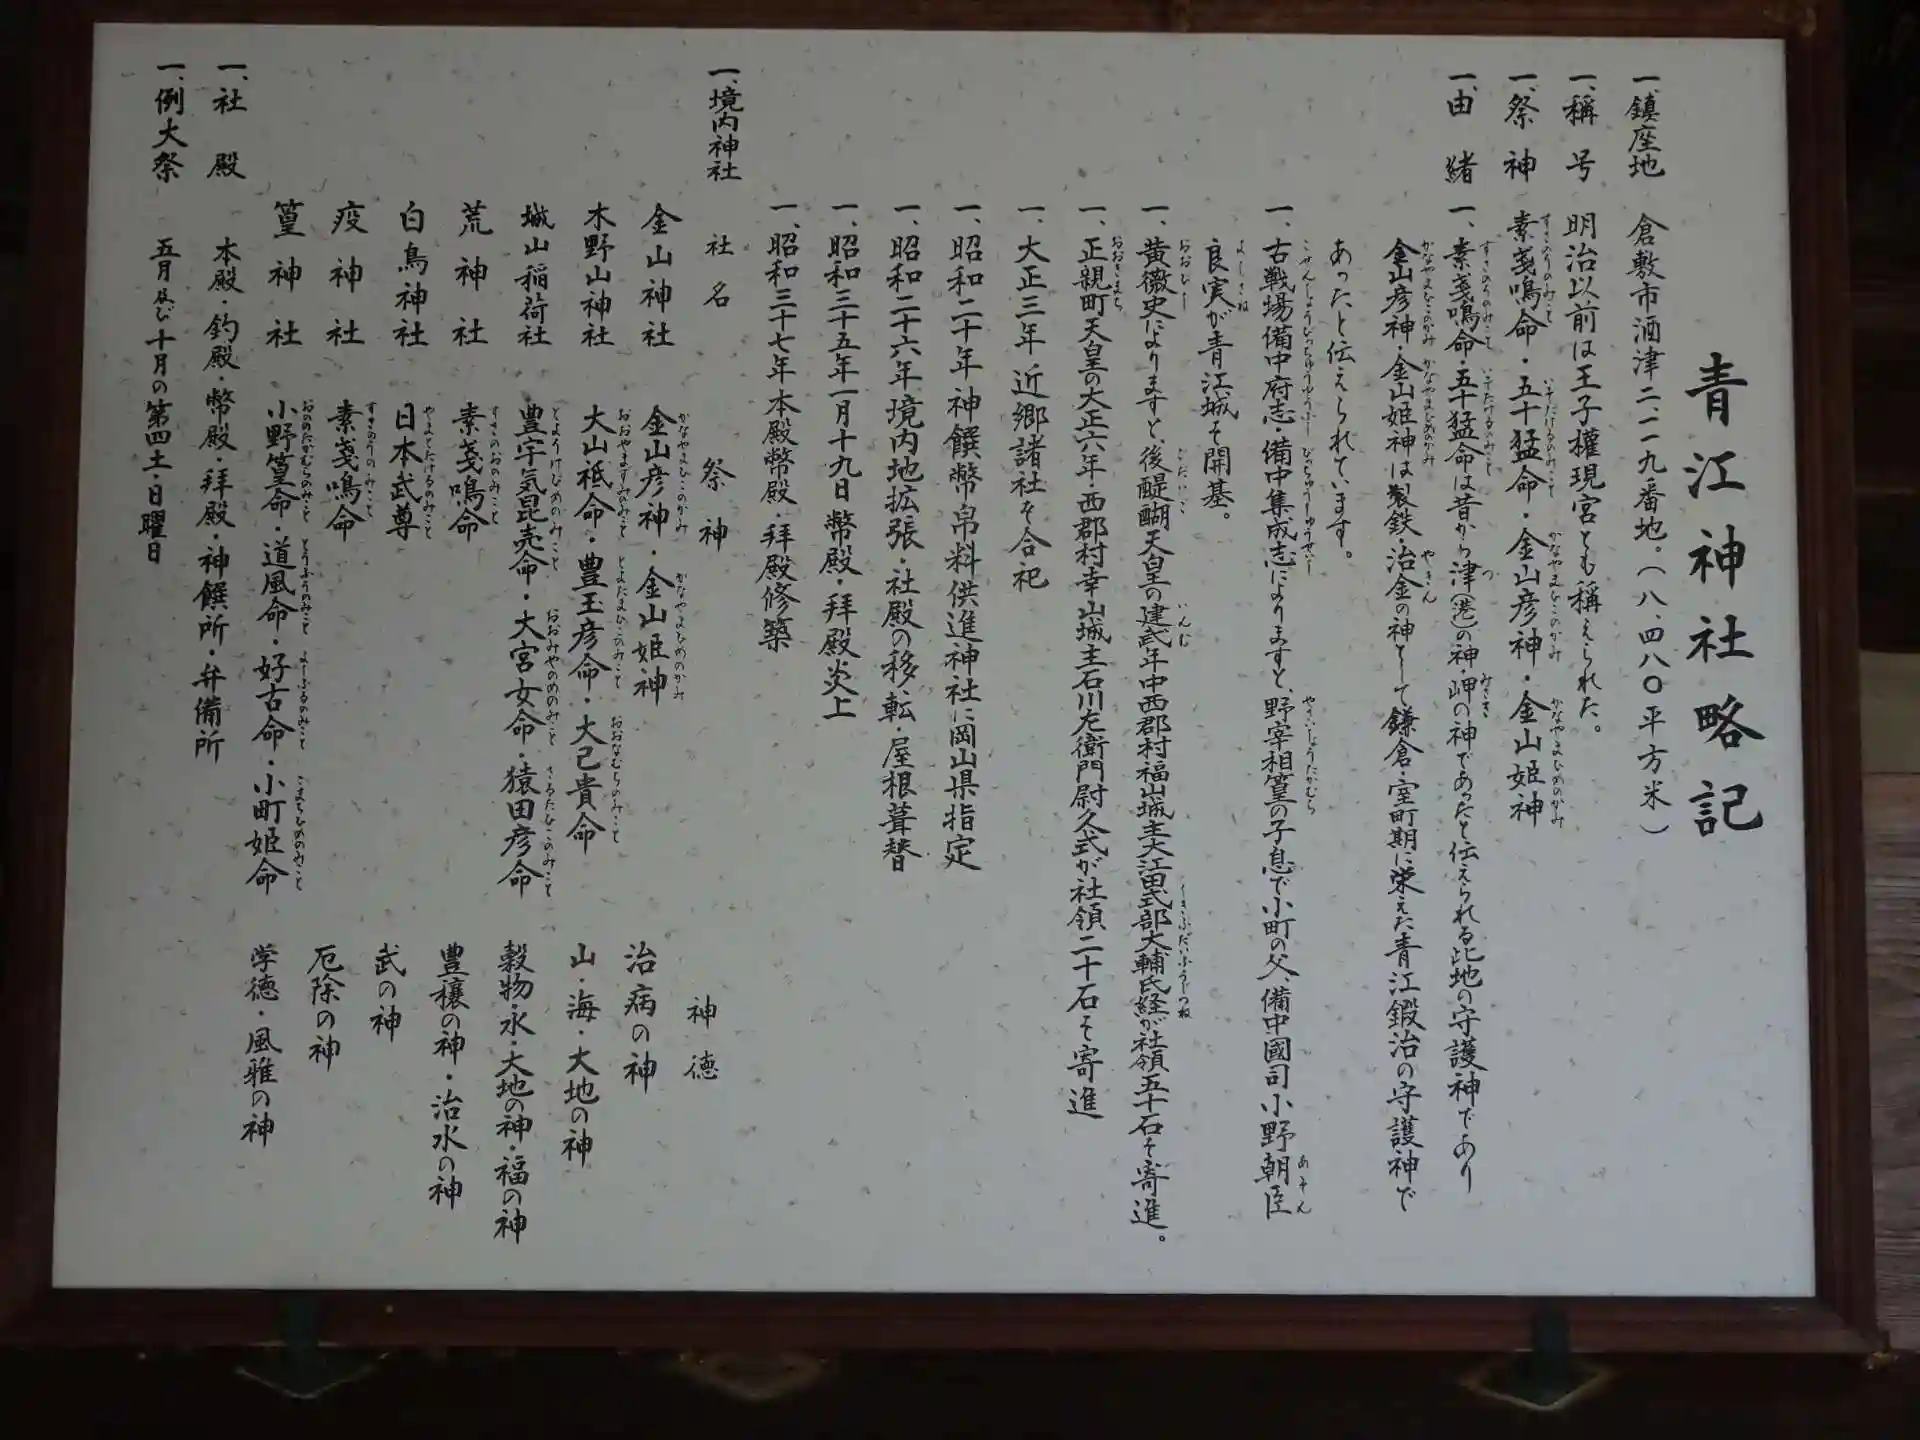 青江神社略記
一、鎮座地 倉敷市酒津二、二一九番地。(八、四八〇平方米)
一、稱号 明治以前は王子權現宮とも稱えられた。
一、祭神 素戔鳴命・五十猛命・金山彦神・金山姫神
一、由緒 一、素戔鳴命・五十猛命は昔から津(港)の神・岬の神であったと伝えられる此地の守護神であり
金山彦神・金山姫神は製鉄・冶金の神として鎌倉・室町期に栄えた青江鍛冶の守護神で
あったと伝えられています。
一、古戦場備中府志・備中集成志によりますと、野宰相篁の子息で小町の父、備中國司小野朝臣
良実が青江城を開基。
一、黄薇史によりますと、後醍醐天皇の建武年中西郡村福山城主大江田式部大輔氏経が社領五十石を寄進。
一、正親町天皇の大正六年・西郡村幸山城主石川左衛門尉久式が社領二十石を寄進
一、大正三年 近郷諸社を合祀
一、昭和二十年 神饌幣帛料供進神社に岡山県指定
一、昭和二十六年 境内地拡張・社殿の移転・屋根葺替
一、昭和三十五年一月十九日 幣殿・拝殿炎上
一、昭和三十七年 本殿幣殿・拝殿修築
一、境内神社 社名 祭神 神徳
金山神社 金山彦神・金山姫神 治病の神
木野山神社 大山祇命・豊玉彦命・大己貴命 山・海・大地の神
城山稲荷社 豊宇氣毘売命・大宮女命・猿田彦命 穀物・水・大地の神・福の神
荒神社 素戔鳴命 豊穣の神・治水の神
白鳥神社 日本武尊 武の神
疫神社 素戔鳴命 厄除の神
篁神社 小野篁命・道風命・好古命・小町姫命 学徳・風雅の神
一、社殿 本殿・釣殿・幣殿・拝殿・神饌所・弁備所
一、例大祭 五月及び十月の第四土・日曜日